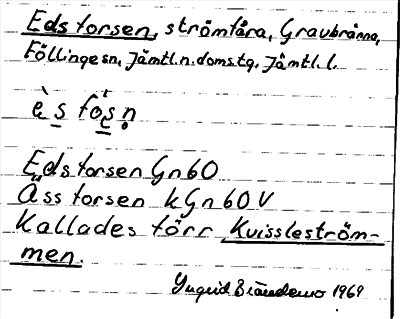 Edstorsen, strömfåra, Gravbränna,
Föllinge sn, Jämtl.n.doms.tg, Jämtl.l.
è s fo̍s n
Edstorsen Gn60
Åsstorsen kGn60V
Kallades förr Kvisslesström-
men.
Yngvid 1969